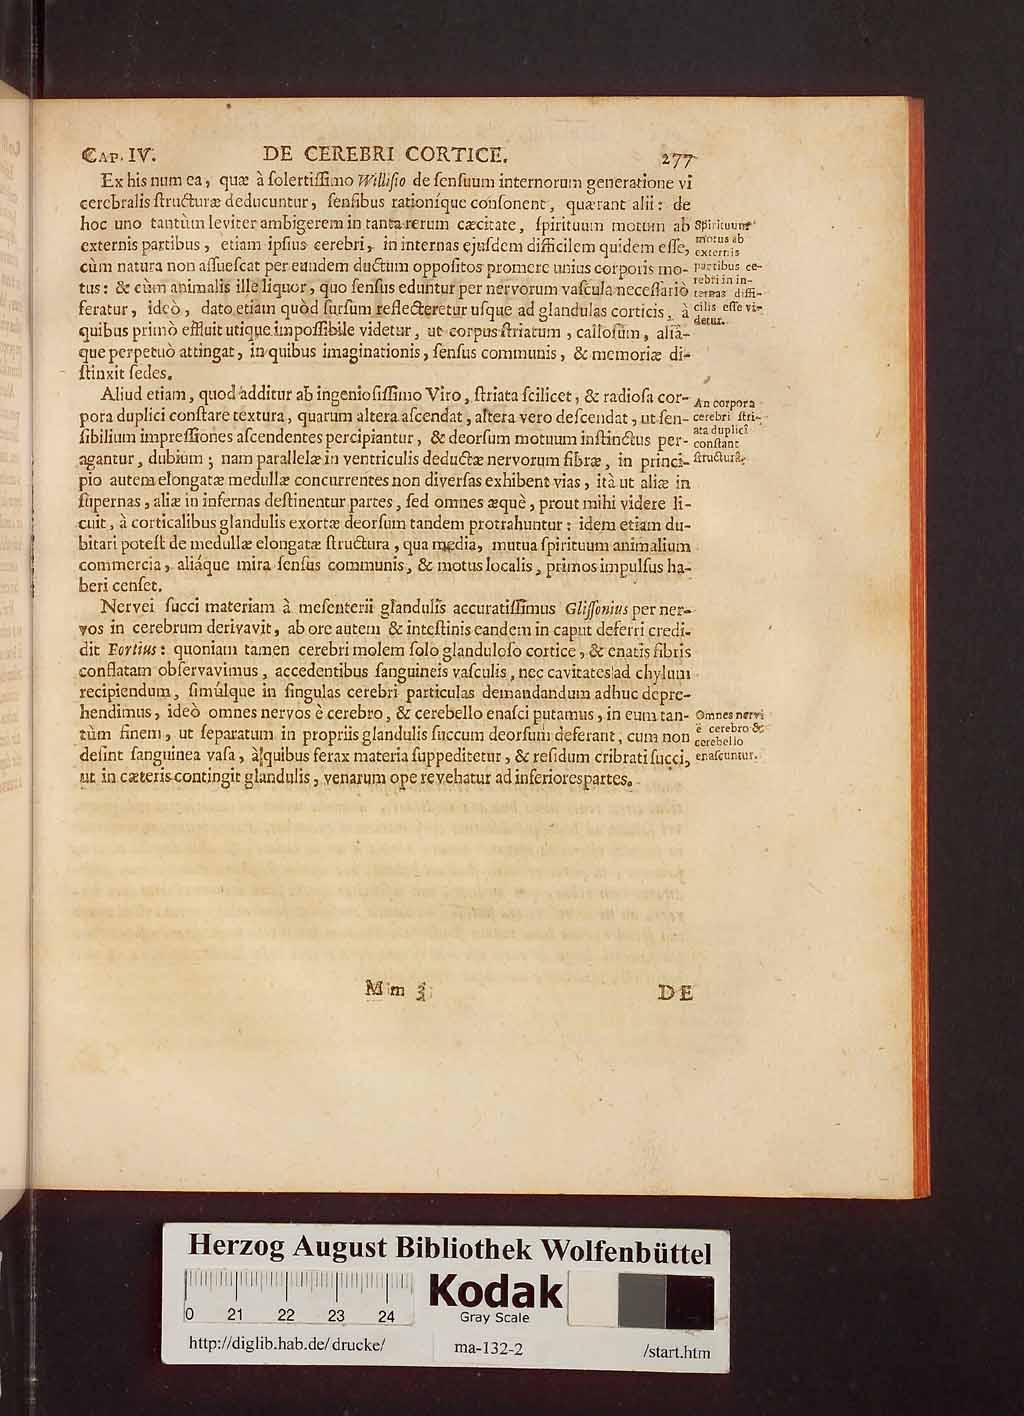 CAP. IV. DE CEREBRI CORTICE. 277
Ex his num ea, quæ à ſolertiſſimo Williſio de ſenſuum internorum generatione vi
cerebralis ſtructuræ deducuntur, ſenſibus rationíque conſonent, quærant alii: de
hoc uno tantùm leviter ambigerem in tanta rerum cæcitate, ſpirituum motum ab
externis partibus, etiam ipſius cerebri, in internas ejuſdem difficilem quidem eſſe,
cùm natura non aſſueſcat per eundem ductum oppoſitos promere unius corporis mo-
tus: & cùm animalis ille liquor, quo ſenſus eduntur per nervorum vaſcula neceſſariò
feratur, ideò, dato etiam quòd ſurſum reflecteretur uſque ad glandulas corticis, à
quibus primò effluit utique impoſſibile videtur, ut corpus ſtriatum, calloſum, aliá-
que perpetuò attingat, in quibus imaginationis, ſenſus communis, & memoriæ di-
ſtinxit ſedes.
Spirituum
motus ab
externis
partibus ce-
rebri in in-
ternas diffi-
cilis eſſe vi-
detur.
Aliud etiam, quod additur ab ingenioſiſſimo Viro, ſtriata ſcilicet, & radioſa cor-
pora duplici conſtare textura, quarum altera aſcendat, altera vero deſcendat, ut ſen-
ſibilium impreſſiones aſcendentes percipiantur, & deorſum motuum inſtinctus per-
agantur, dubium; nam parallelæ in ventriculis deductæ nervorum fibræ, in princi-
pio autem elongatæ medullæ concurrentes non diverſas exhibent vias, ità ut aliæ in
ſupernas, aliæ in infernas deſtinentur partes, ſed omnes æquè, prout mihi videre li-
cuit, à corticalibus glandulis exortæ deorſum tandem protrahuntur: idem etiam du-
bitari poteſt de medullæ elongatæ ſtructura, qua media, mutua ſpirituum animalium
commercia, aliáque mira ſenſus communis, & motus localis, primos impulſus ha-
beri cenſet.
An corpora
cerebri ſtri-
ata duplici
conſtant
ſtructurâ.
Nervei ſucci materiam à meſenterii glandulis accuratiſſimus Gliſſonius per ner-
vos in cerebrum derivavit, ab ore autem & inteſtinis eandem in caput deferri credi-
dit Fortius: quoniam tamen cerebri molem ſolo glanduloſo cortice, & enatis fibris
conflatam obſervavimus, accedentibus ſanguineis vaſculis, nec cavitates ad chylum
recipiendum, ſimúlque in ſingulas cerebri particulas demandandum adhuc depre-
hendimus, ideò omnes nervos è cerebro, & cerebello enaſci putamus, in eum tan-
tùm finem, ut ſeparatum in propriis glandulis ſuccum deorſum deferant, cum non
deſint ſanguinea vaſa, à quibus ferax materia ſuppeditetur, & reſidum cribrati ſucci,
ut in cæteris contingit glandulis, venarum ope revehatur ad inferiores partes.
Omnes nervi
è cerebro &
cerebello
enaſcuntur.
Mm 3 DE
Herzog August Bibliothek Wolfenbüttel
0 21 22 23 24
Kodak
Gray Scale
http://diglib.hab.de/drucke/ ma-132-2 /start.htm